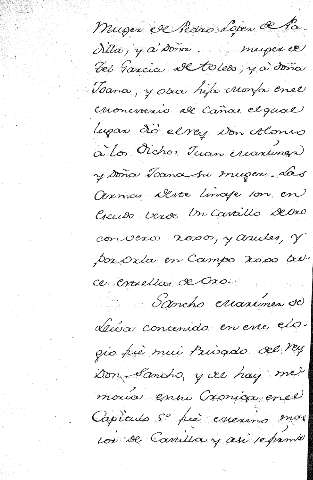 Muger de Pedro Lopez de Pa-
dilla, y à Doña . muger de
Tel Garcia de toledo, y à Doña
Joana, y otra hija monja en el
monesterio de Cañas el qual
lugar dió el rey Don Alonso
à los Dichos Juan Martinez
y Doña Joana su muger. Las
Armas deste linaje son, en
Escudo verde Un Castillo de oro
con veros roxos, y azules, y
por orla en Campo roxo tre
ce estrellas de Oro.
Sancho Martinez de
Leiva contenido en este elo-
gio fue mui Privado del rey
Don Sancho, y de hay me-
moria en su Cronica, en el
Capitulo 5º fue merino ma-
ior de Castilla y asi se firmó